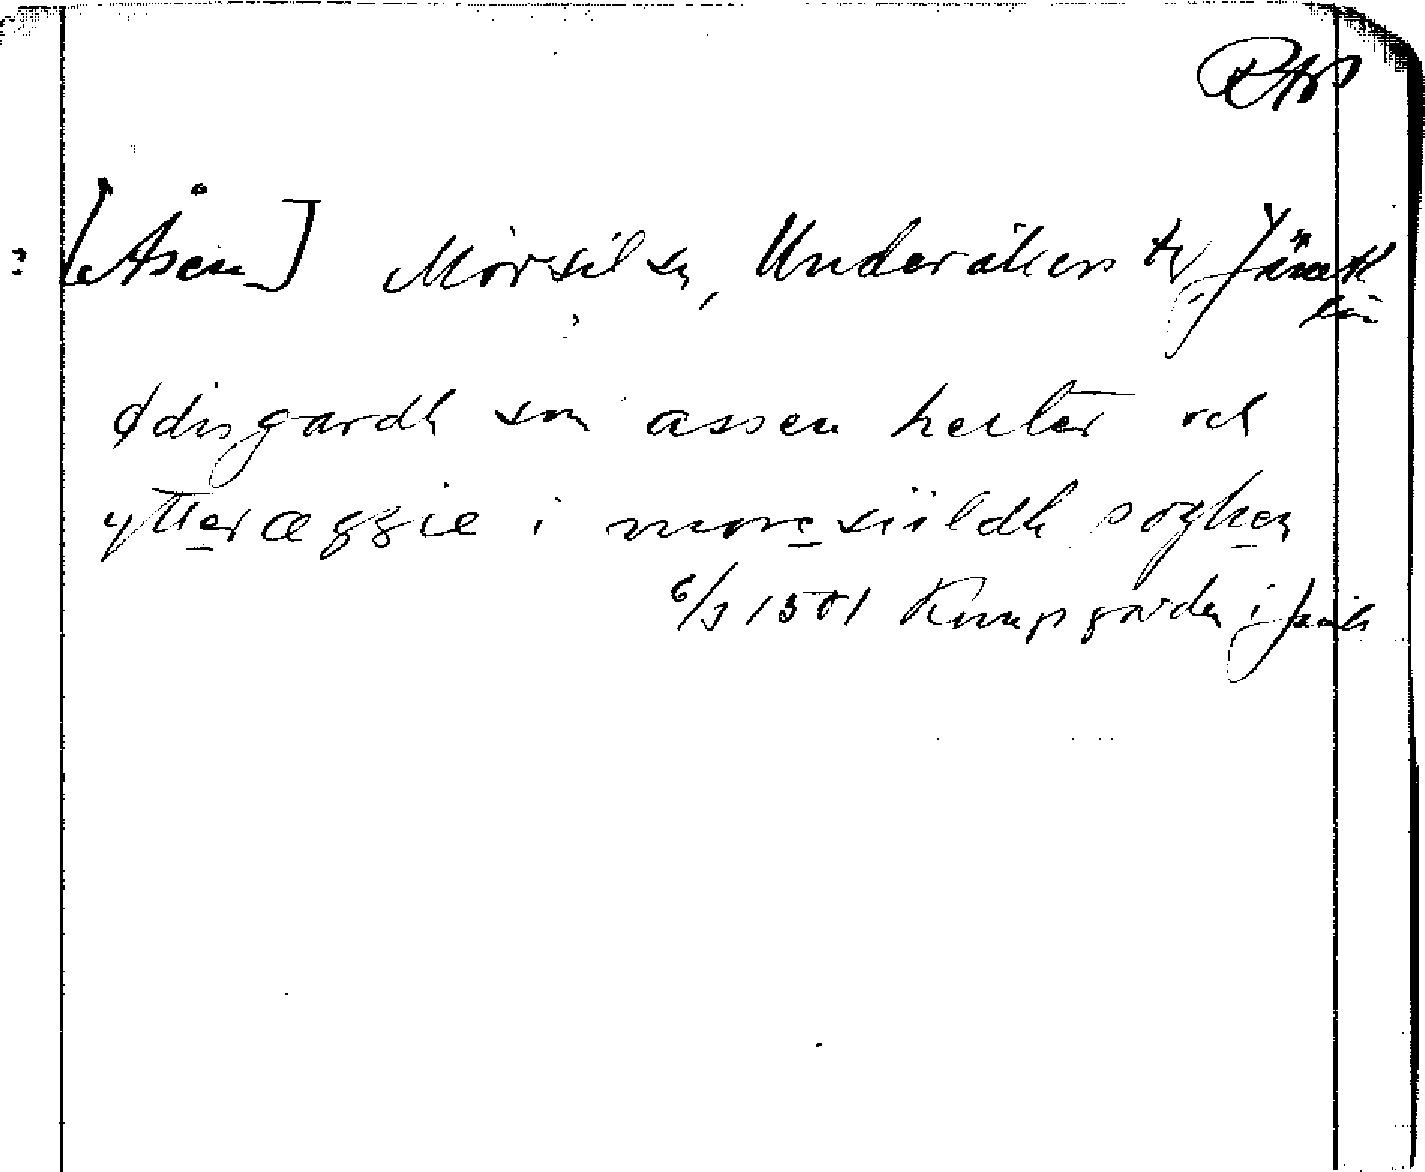 ? [Åsen] Mörsil sn, Undersåkers tg, Jämtl
län
ødisgardh som assen heiter och
ytteræggie i moresiildh soghen
6/3 1501 Knapgarden i